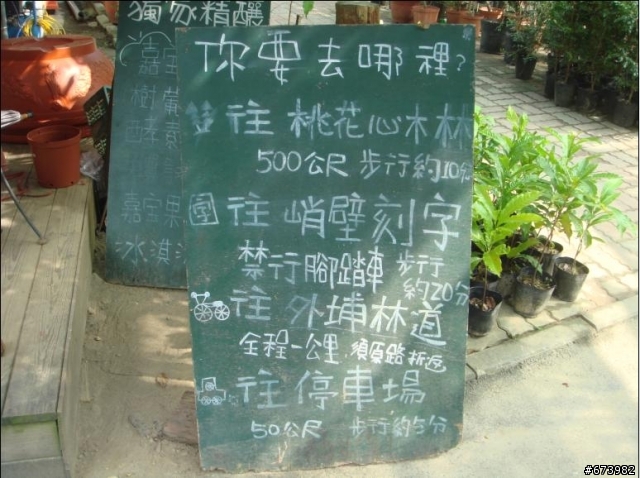 獨家精釀
嘉宝
樹黃
酵素
嘉宝果
冰淇
你要去哪裡?
往 桃花心木林
500公尺 步行約10分
往 峭壁刻字
禁行腳踏車 步行
約20分
往 外埔林道
全程一公里.須原路折返
往停車場
50公尺 步行約5分
#673982